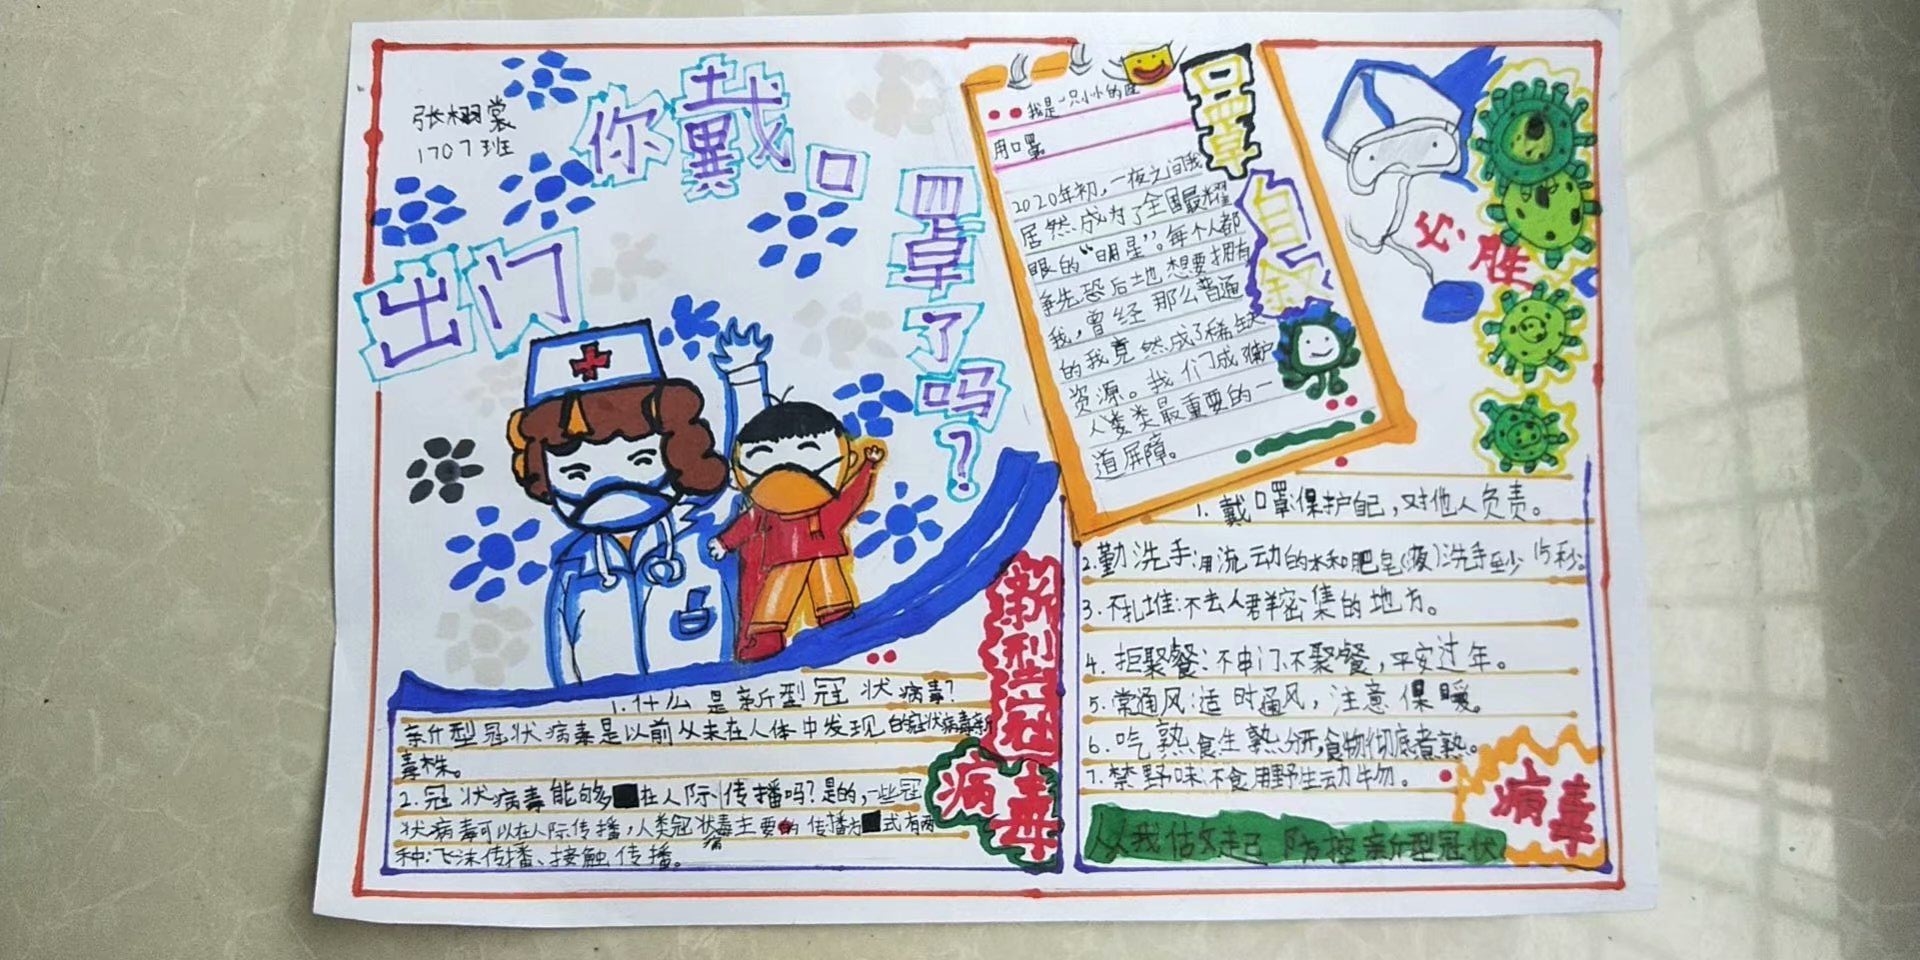 张栩裳
1707班
出门你戴口罩了吗?
我是一只小小的医
用口罩
口罩自叙
2020年初,一夜之间我
居然成为了全国最耀
眼的“明星”。每个人都
争先恐后地想要拥有
我,曾经那么普通
的我竟然成了稀缺
资源。我们成了保护
人类最重要的一
道屏障。
必胜
新型冠
病毒
1.什么是新型冠状病毒?
新型冠状病毒是以前从未在人体中发现的冠状病毒新
毒株。
2.冠状病毒能够在人际传播吗?是的,一些冠
状病毒可以在人际传播,人类冠状病毒主要的传播方式有两
种:飞沫传播、接触传播。
1.戴口罩保护自己,对他人负责。
2.勤洗手:用流动的水和肥皂(液)洗手至少15秒。
3.不扎堆:不去人群密集的地方。
4.拒聚餐:不串门不聚餐,平安过年。
5.常通风:适时通风,注意保暖。
6.吃熟食生熟分开,食物彻底煮熟。
7.禁野味:不食用野生动物。
从我做起 防控新型冠状
病毒